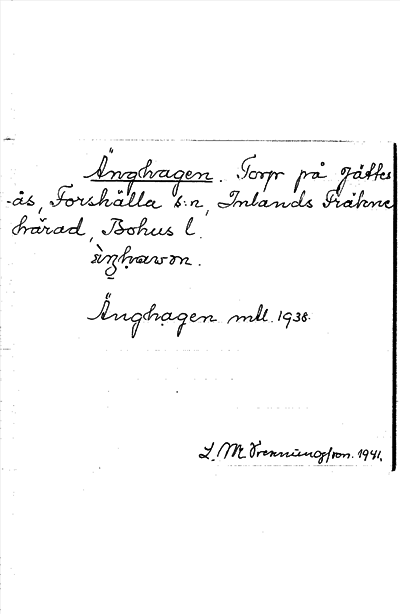 Änghagen. Torp på Jättes
-ås, Forshälla s:n, Inlands Fräkne
härad, Bohus l.
Änghagen mtl. 1938.
L. M. 1941.